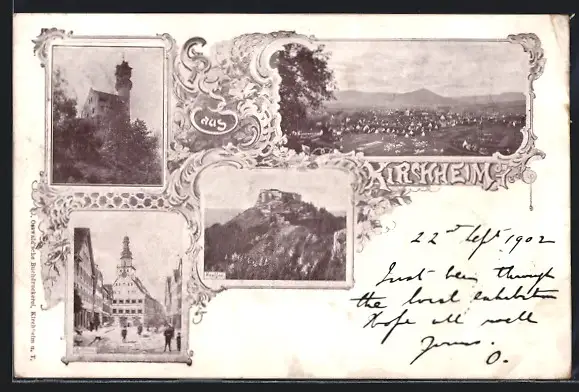 Gruss
aus
KIRCHHEIM u/T.
22nd Sept 1902
Just been through
the local exhibition
Hope all well
Yours.
O.
Osswald'sche Buchdruckerei, Kirchheim u. T.